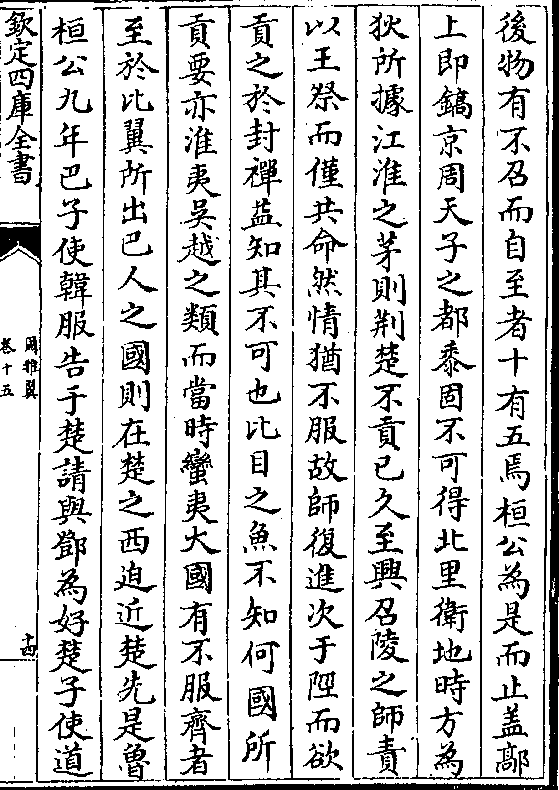 後物有不召而自至者十有五焉桓公為是而止盖鄗
上即鎬京周天子之都黍固不可得北里衛地時方為
狄所據江淮之茅則荆楚不貢已久至興召陵之師責
以王祭而僅共命然情猶不服故師復進次于陘而欲
貢之於封禪葢知其不可也比目之魚不知何國所
貢要亦淮夷吳越之類而當時蠻夷大國有不服齊者
至於比翼所出巴人之國則在楚之西迫近楚先是魯
桓公九年巴子使韓服告于楚請與鄧為好楚子使道
欽定四庫全書
爾雅翼
卷十五
十四